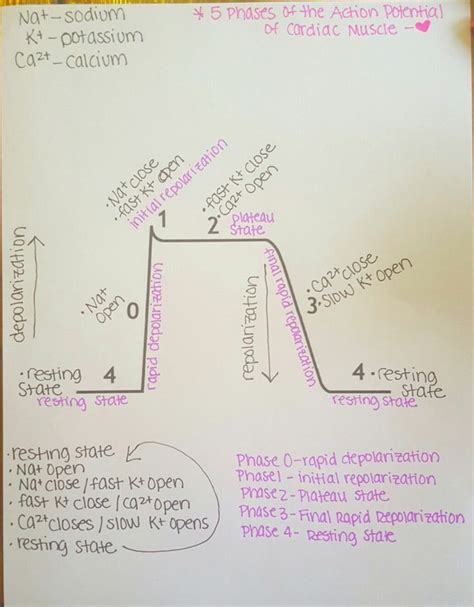 Na+ – sodium
K+ – potassium
Ca2+ – calcium
* 5 Phases of the Action Potential
of Cardiac Muscle – ♥
• Na+ close
• fast K+ open
initial repolarization
1
• fast K+ close
• Ca2+ open
2 plateau
state
depolarization
• Na+
open
0
rapid depolarization
repolarization
final rapid repolarization
• Ca2+ close
3 • slow K+ open
• resting
state
4
resting state
4 • resting
state
resting state
• resting state
• Na+ open
• Na+ close / fast K+ open
• fast K+ close / Ca2+ open
• Ca2+ closes / slow K+ opens
• resting state
Phase 0 – rapid depolarization
Phase 1 – initial repolarization
Phase 2 – Plateau State
Phase 3 – Final Rapid Repolarization
Phase 4 – Resting State